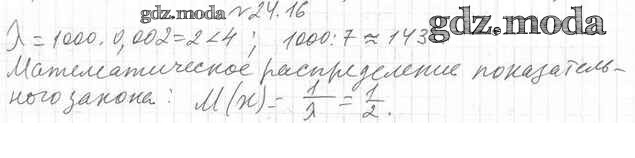 gdz.moda №24.16
gdz.moda
λ = 1000 · 0,002 = 2 < 4 ; 1000 : 7 ≈ 143
Математическое распределение показатель-
ного закона : M(x) = 1/λ = 1/2 .